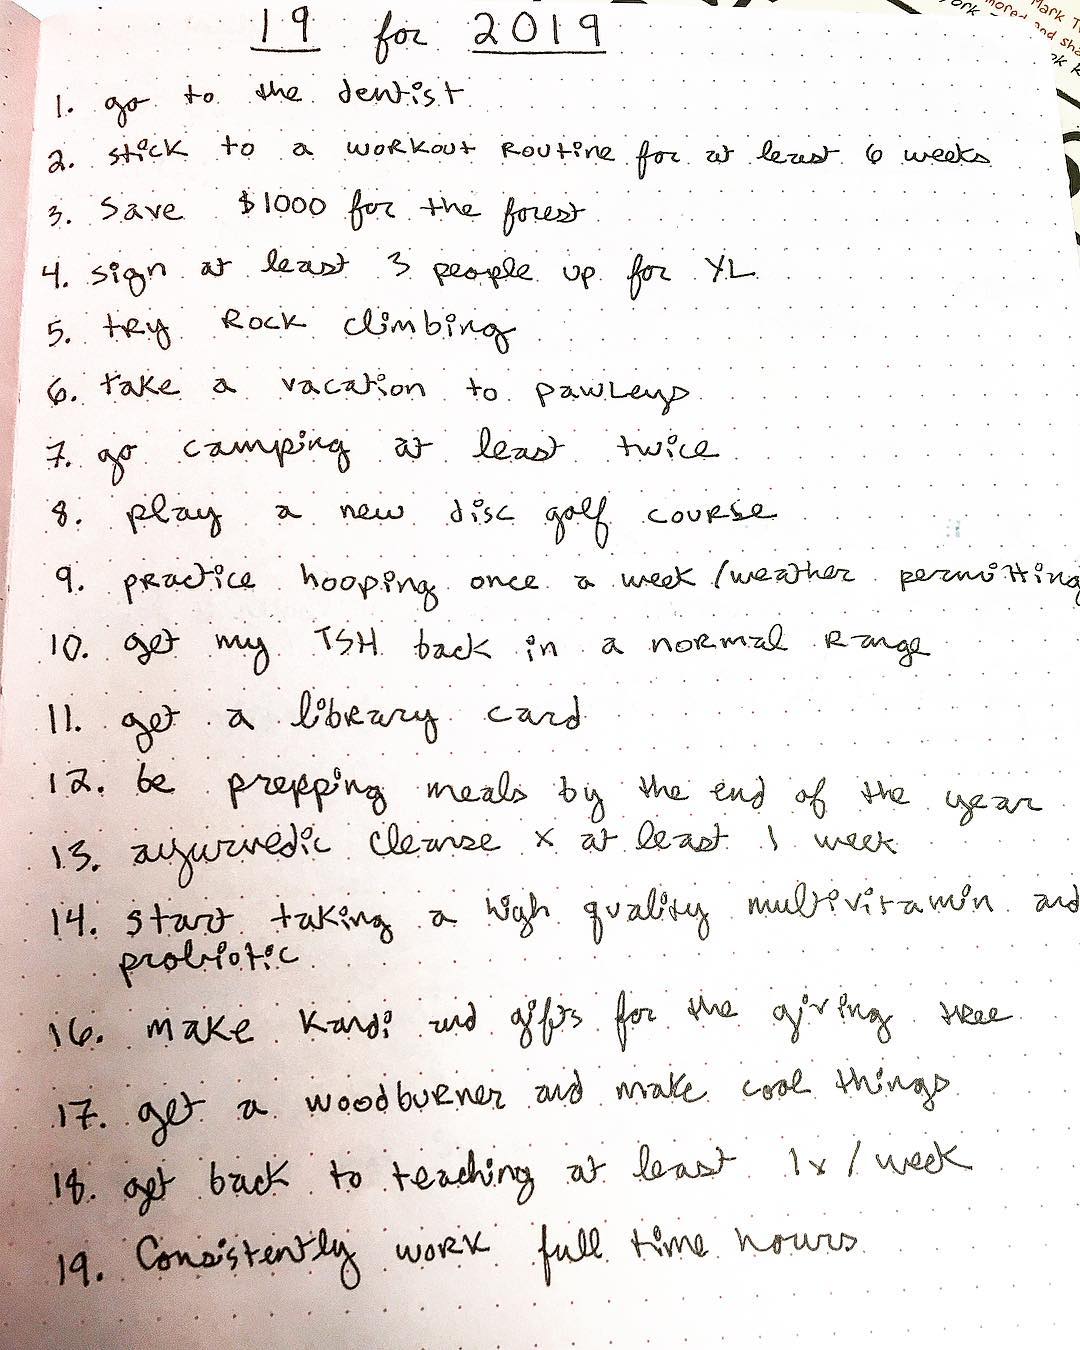 19 for 2019
1. go to the dentist
2. stick to a workout routine for at least 6 weeks
3. Save $1000 for the forest
4. sign at least 3 people up for YL
5. try Rock climbing
6. take a vacation to pawleys
7. go camping at least twice
8. play a new disc golf course
9. practice hooping once a week / weather permitting
10. get my TSH back in a normal range
11. get a library card
12. be prepping meals by the end of the year
13. ayurvedic cleanse x at least 1 week
14. start taking a high quality multivitamin and
probiotic
16. make Kandi and gifts for the giving tree
17. get a woodburner and make cool things
18. get back to teaching at least 1x / week
19. Consistently work full time hours
Mark T
more and sha